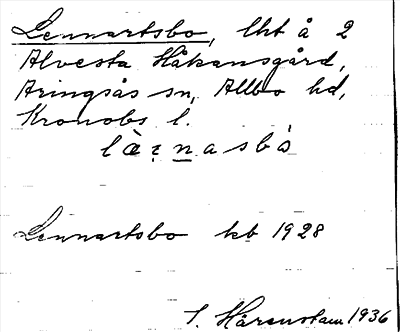 Lennartsbo, lht å 2
Alvesta Håkansgård,
Aringsås sn, Allbo hd,
Kronobs l.
Lennartsbo kb 1928
S. Hårenstam 1936